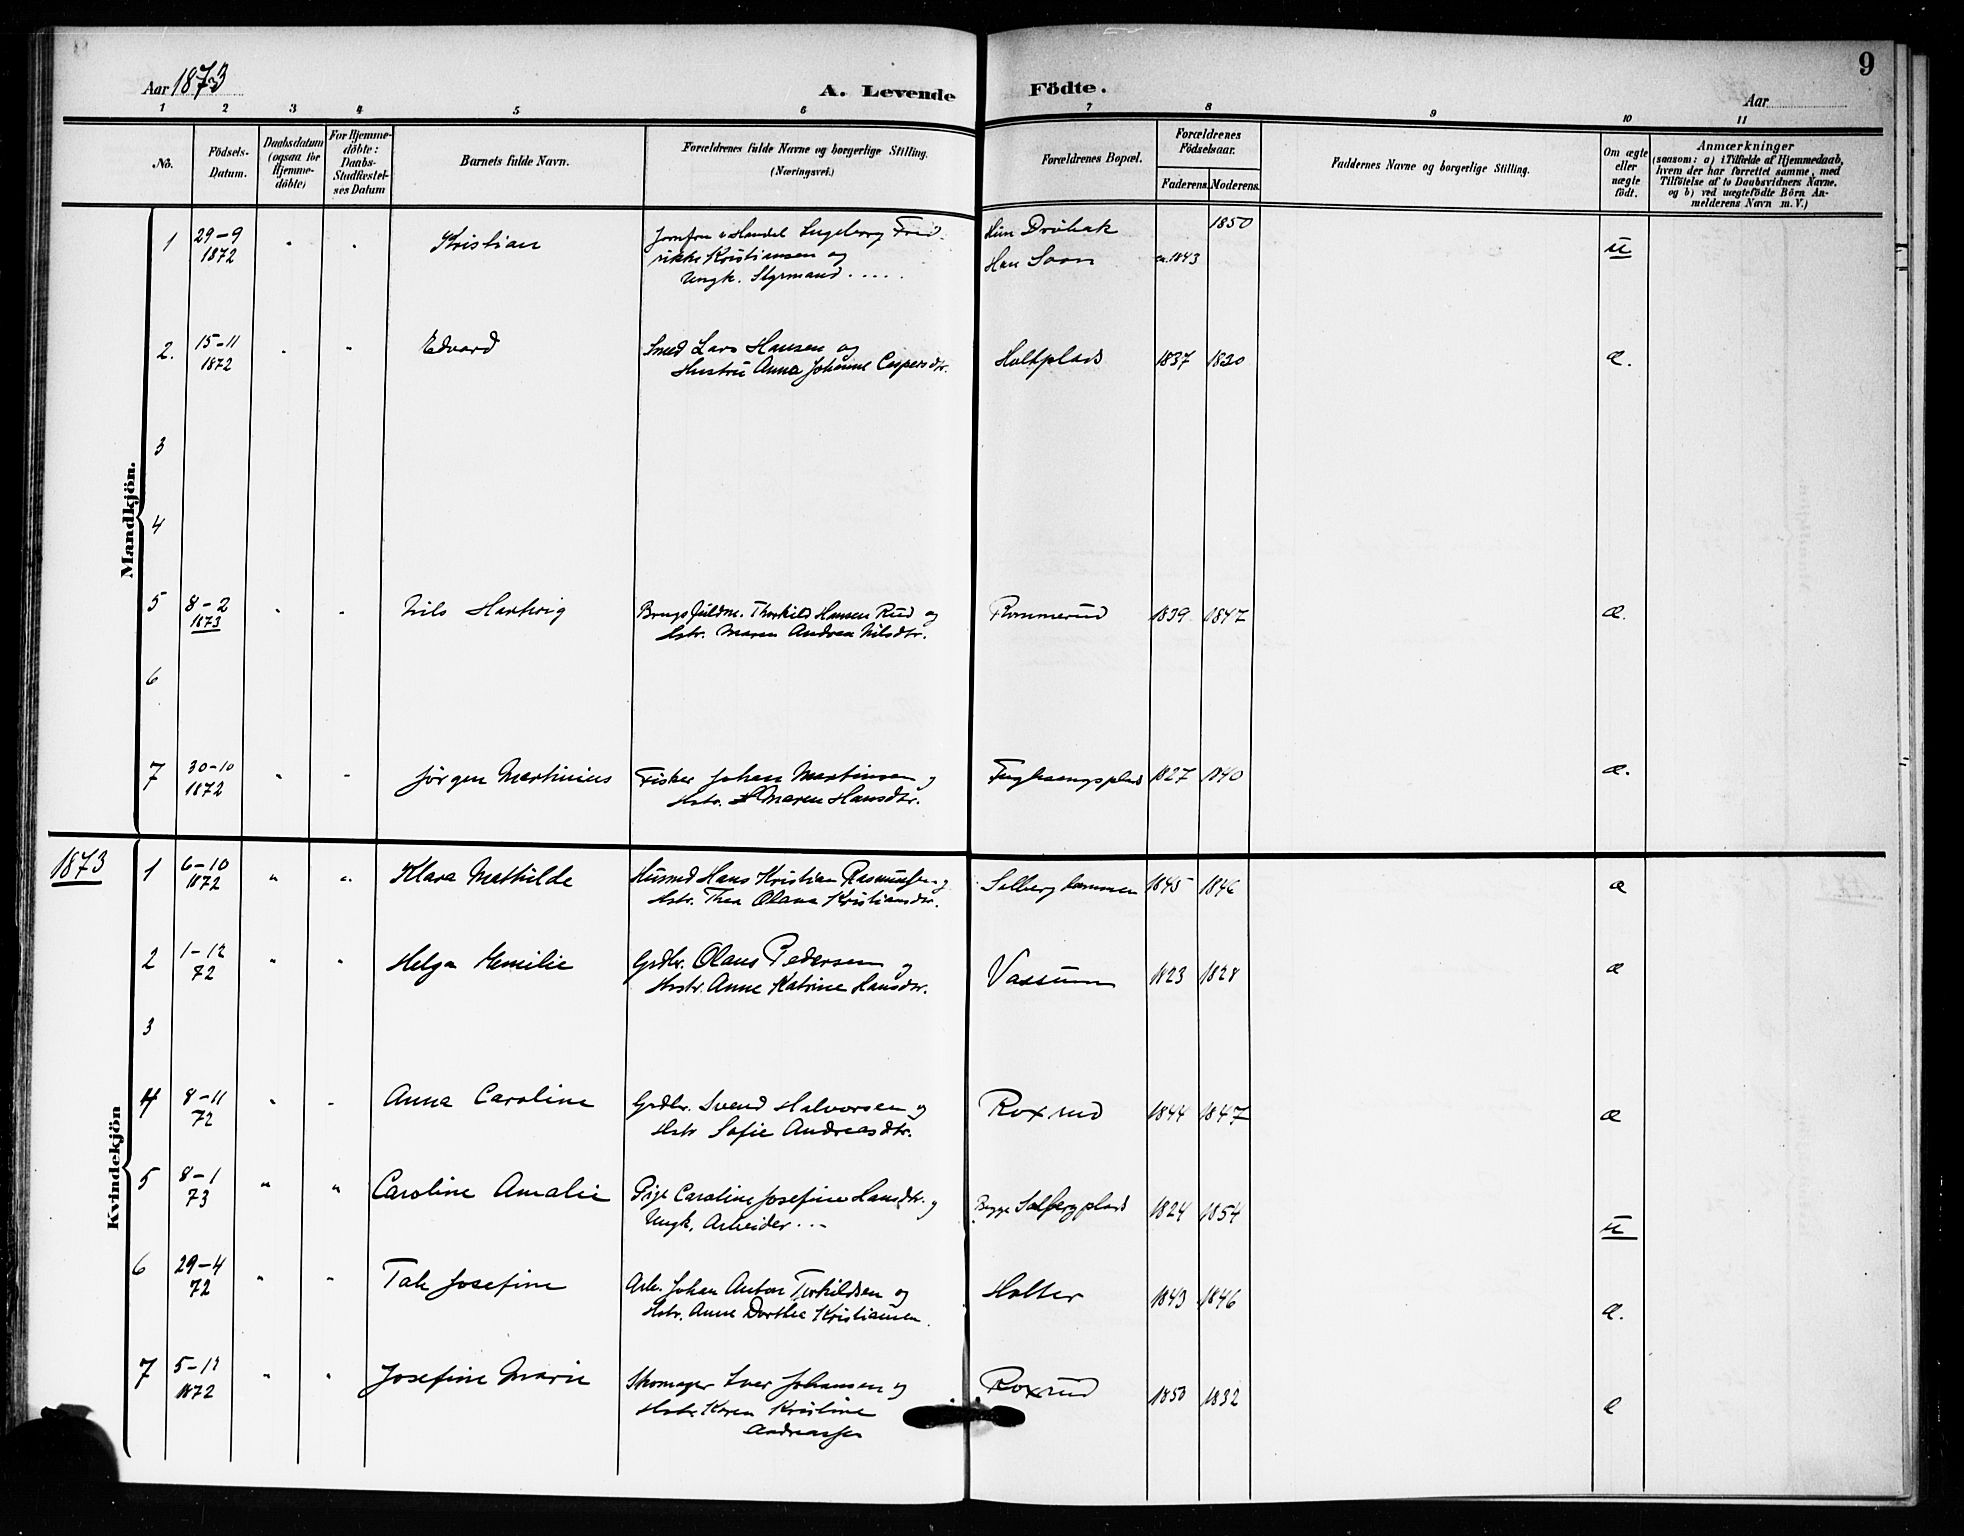 Aar 1873
A. Levende Födte.
9
Aar
1 2 3 4 5 6 7 8 9 10 11
No.
Födsels-
Datum.
Daabsdatum
(ogsaa for
Hjemme-
döbte)
For Hjemme-
döbte:
Daabs-
Stadfæstel-
ses Datum
Barnets fulde Navn.
Forældrenes fulde Navne og borgerlige Stilling.
(Næringsvei.)
Forældrenes Bopæl.
Forældrenes
Födselsaar.
Faderens. Moderens.
Faddernes Navne og borgerlige Stilling.
Om ægte
eller
uægte
födt.
Anmærkninger
(saasom: a) i Tilfælde af Hjemmedaab,
hvem der har forrettet samme, med
Tilföielse af to Daabsvidners Navne.
og b) ved uægtefödte Börn An-
melderens Navn m. V.)
Mandkjön.
1 29-9 " " Kristian Jomfru i Handel Ingeborg Fred- Hun Dröbak 1850 u
1872 rikke Kristiansen og Han Soon ca. 1843
Ungk. Styrmand .....
2. 15-11 " " Edvard Smed Lars Hansen og Holtplads 1837 1830 æ.
1872 Hustru Anna Johanne Caspersdtr.
3
4
5 8-2 " " Nils Hartvig Brugsfuldm. Thorkild Hansen Rud og Rommerud 1839 1847 æ.
1873 Hstr. Maren Andrea Nilsdtr.
6
7 30-10 " " Jörgen Martinius Fisker Johan Martinsen og 1827 1840 æ.
1872 Hstr. Maren Hansdtr.
1873
Kvindekjön
1 6-10 " " Klara Mathilde Husmd Hans Kristian Rasmussen og 1845 1846 æ
1872 Hstr. Thea Olava Kristiansdtr.
2 1-12 " " Helga Emilie Grdbr. Olaus Pedersen og Vassum 1823 1828 æ
72 Hstr. Anne Katrine Hansdtr.
3
4 8-11 " " Anna Caroline Grdbr. Svend Halvorsen og Roxrud 1844 1847 æ
72 Hstr Sofie Andreasdtr.
5 8-1 " " Caroline Amalie Pige Caroline Josefine Hansdtr. og Begge Solbergplads 1824 1854 u
73 Ungk. Arbeider ...
6 29-4 " " Josefine Arb. Johan Anton Torkildsen og Holter 1843 1846 æ.
72 Hstr. Anne Dorthea Kristiansen.
7 5-12 " " Josefine Marie Skomager Iver Johansen og Roxrud 1850 1832 æ
1872 Hstr Karen Kristine